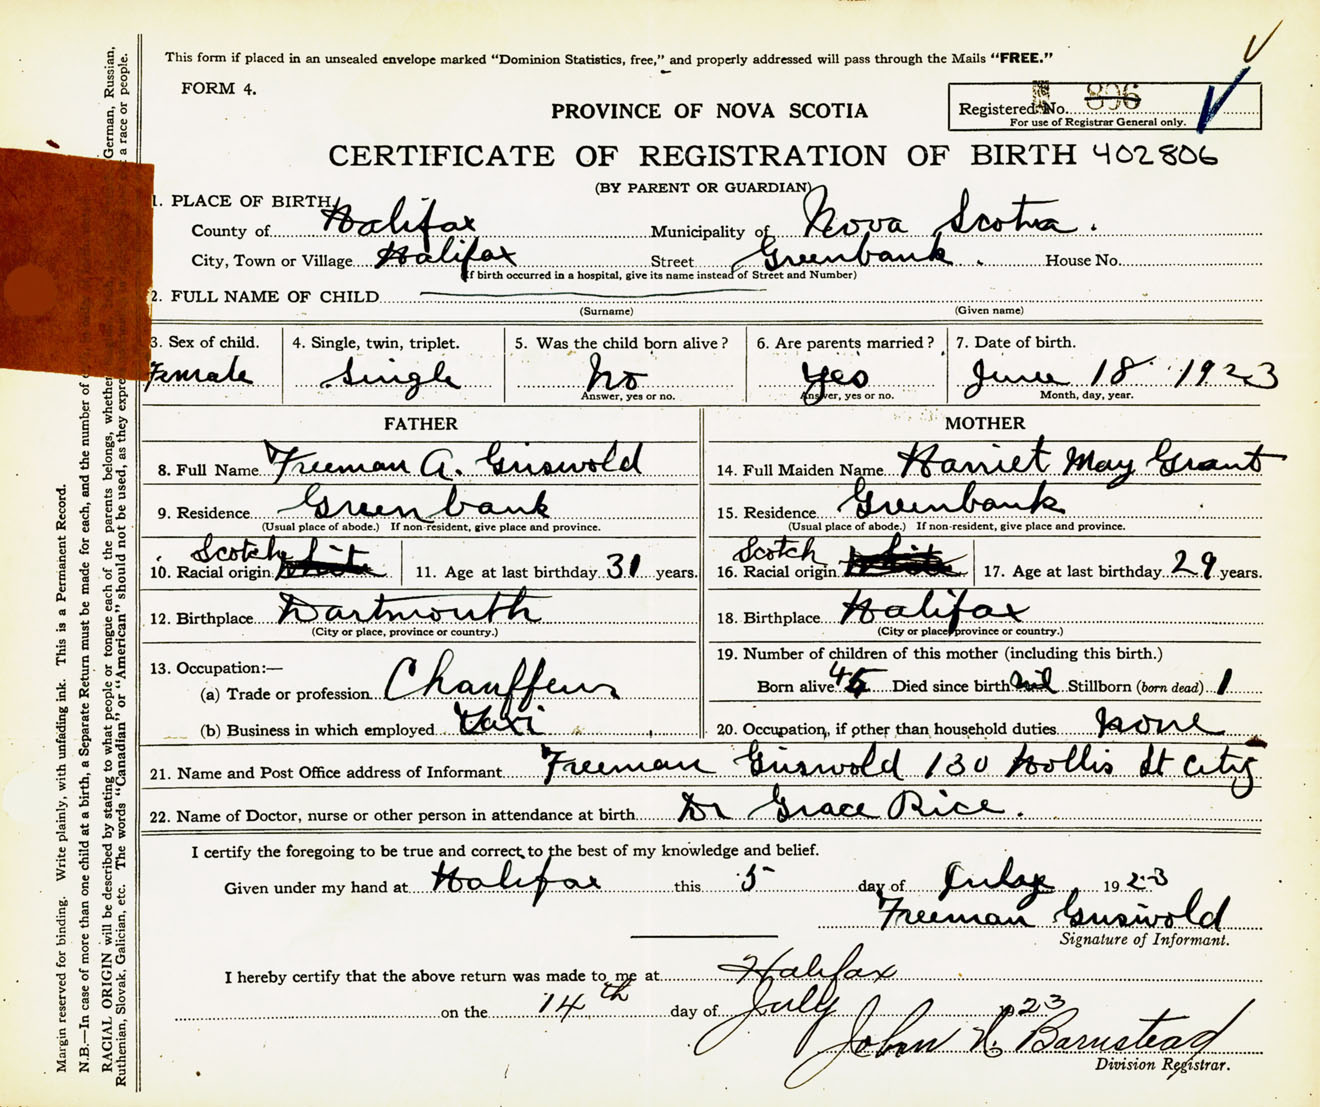 This form if placed in an unsealed envelope marked “Dominion Statistics, free,” and properly addressed will pass through the Mails “FREE.”
FORM 4.
PROVINCE OF NOVA SCOTIA
Registered No. 806
For use of Registrar General only.
CERTIFICATE OF REGISTRATION OF BIRTH 402806
(BY PARENT OR GUARDIAN)
1. PLACE OF BIRTH
County of Halifax Municipality of Nova Scotia.
City, Town or Village Halifax Street Greenbank. House No.
(If birth occurred in a hospital, give its name instead of Street and Number)
2. FULL NAME OF CHILD
(Surname) (Given name)
3. Sex of child. 4. Single, twin, triplet. 5. Was the child born alive? 6. Are parents married? 7. Date of birth.
Female Single No Yes June 18 1923
Answer, yes or no. Answer, yes or no. Month, day, year.
FATHER MOTHER
8. Full Name Freeman A. Griswold 14. Full Maiden Name Harriet May Grant
9. Residence Greenbank 15. Residence Greenbank
(Usual place of abode.) If non-resident, give place and province. (Usual place of abode.) If non-resident, give place and province.
10. Racial origin Scotch White 11. Age at last birthday 31 years. 16. Racial origin Scotch White 17. Age at last birthday 29 years.
12. Birthplace Dartmouth 18. Birthplace Halifax
(City or place, province or country.) (City or place, province or country.)
13. Occupation:— 19. Number of children of this mother (including this birth.)
(a) Trade or profession Chauffeur Born alive 4 5 Died since birth nil Stillborn (born dead) 1
(b) Business in which employed Taxi 20. Occupation, if other than household duties None
21. Name and Post Office address of Informant Freeman Griswold 130 Hollis St City
22. Name of Doctor, nurse or other person in attendance at birth Dr Grace Rice.
I certify the foregoing to be true and correct to the best of my knowledge and belief.
Given under my hand at Halifax this 5 day of July 1923
Freeman Griswold
Signature of Informant.
I hereby certify that the above return was made to me at Halifax
on the 14th day of July 23
John N. Barnstead
Division Registrar.
Margin reserved for binding. Write plainly, with unfading ink. This is a Permanent Record.
N.B.—In case of more than one child at a birth, a Separate Return must be made for each, and the number of
RACIAL ORIGIN will be described by stating to what people or tongue each of the parents belongs, whether German, Russian,
Ruthenian, Slovak, Galician, etc. The words “Canadian” or “American” should not be used, as they expre a race or people.